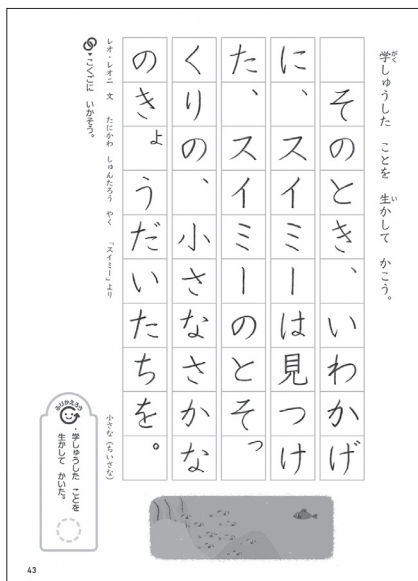 学しゅうした ことを 生かして かこう。
がく
い
そのとき、いわかげ
に、スイミーは見つけ
た、スイミーのとそっ
くりの、小さなさかな
のきょうだいたちを。
レオ・レオニ 文 たにかわ しゅんたろう やく 「スイミー」より
小さな(ちいさな)
こくごに いかそう。
ふりかえろう
・学しゅうした ことを
生かして かいた。
43